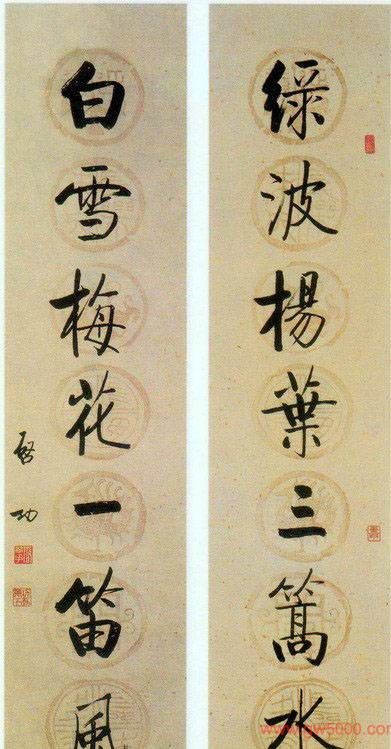 綠波楊葉三篙水
白雪梅花一笛風
啓功
www.gw5000.com